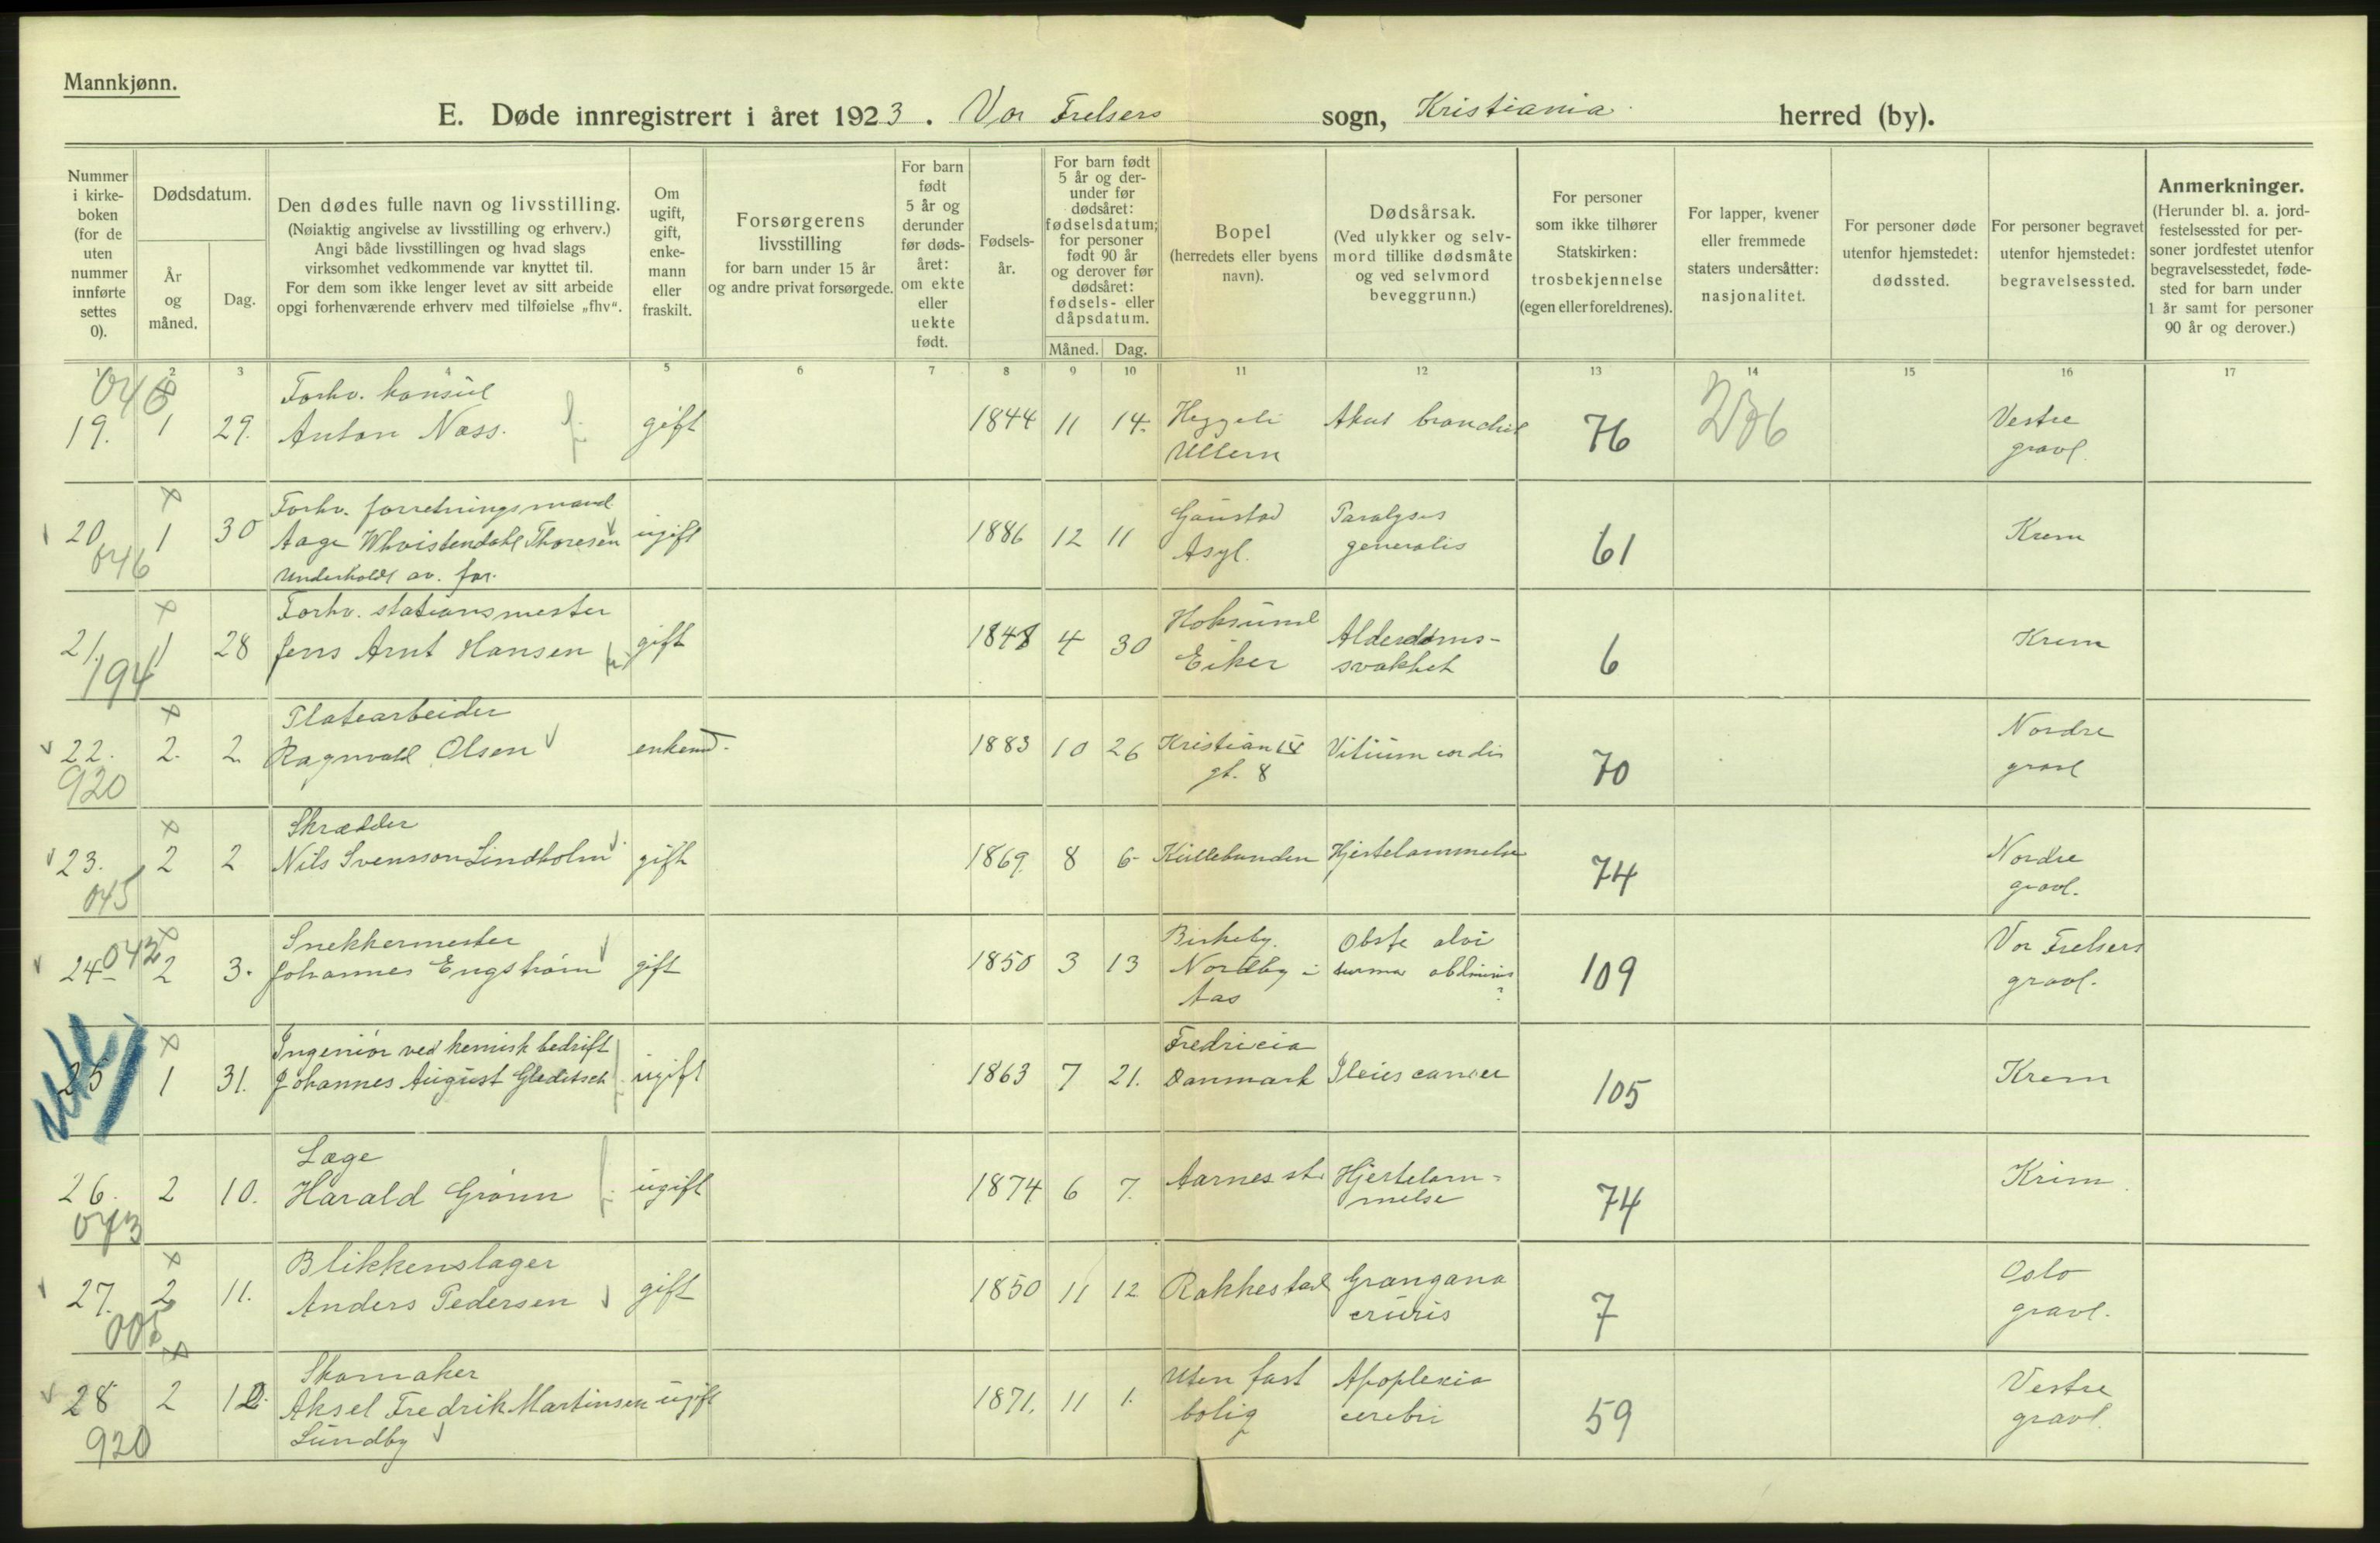 Mannkjønn.
E. Døde innregistrert i året 1923. Vor Frelsers sogn, Kristiania herred (by).
Nummer i kirke-boken (for de uten nummer innførte settes 0).
Dødsdatum.
År og måned.
Dag.
Den dødes fulle navn og livsstilling.
(Nøiaktig angivelse av livsstilling og erhverv.)
Angi både livsstillingen og hvad slags
virksomhet vedkommende var knyttet til.
For dem som ikke lenger levet av sitt arbeide
opgi forhenværende erhverv med tilføielse „fhv“.
Om ugift, gift, enke-mann eller fraskilt.
Forsørgerens livsstilling
for barn under 15 år
og andre privat forsørgede.
For barn født 5 år og derunder før døds-året: om ekte eller uekte født.
Fødsels-år.
For barn født 5 år og der-under før dødsåret: fødselsdatum; for personer født 90 år og derover før dødsåret: fødsels- eller dåpsdatum.
Måned. Dag.
Bopel
(herredets eller byens navn).
Dødsårsak.
(Ved ulykker og selv-mord tillike dødsmåte og ved selvmord beveggrunn.)
For personer som ikke tilhører Statskirken: trosbekjennelse (egen eller foreldrenes).
For lapper, kvener eller fremmede staters undersåtter: nasjonalitet.
For personer døde utenfor hjemstedet: dødssted.
For personer begravet utenfor hjemstedet: begravelsessted.
Anmerkninger.
(Herunder bl. a. jord-festelsessted for per-soner jordfestet utenfor begravelsesstedet, føde-sted for barn under 1 år samt for personer 90 år og derover.)
1 2 3 4 5 6 7 8 9 10 11 12 13 14 15 16 17
046
Forhv. konsul
19. 1 29. Anton Næss. gift 1844 11 14. Heggeli Akut bronchit 76 236 Vestre
Ullern gravl.
x Forhv. forretningsmand
20 1 30 Aage Whvistendahl Thoresen ugift 1886 12 11 Gaustad Asyl. Paralyses generalis 61 Krem
046 Underholdt av. far.
x Forhv. stationsmester
21. 1 28 Jens Arnt Hansen gift 1848 4 30 Hoksund Eiker Alderdoms-svakhet 6 Krem
194
x Platearbeider
22. 2. 2. Ragnvald Olsen enkem. 1883 10 26 Kristian IV gt. 8 Vitium cordis 70 Nordre gravl
920
x Skrædder
23. 2 2 Nils Svensson Lindholm gift 1869 8 6 Kullebunden Hjertelammelse 74 Nordre gravl.
045
042 x Snekkermester
24 2 3. Johannes Engstrøm gift 1850 3 13 Birkeby. Nordby i Aas Obst alvi 109 Vor Frelsers gravl.
x Ingeniør ved kemisk bedrift
25 1 31. Johannes August Gleditsch ugift 1863 7 21. Fredricia Danmark Ileus cancer 105 Krem
Læge
26. 2 10. Harald Grønn ugift 1874 6 7. Aarnes st. Hjertelam-melse 74 Krim
043
x Blikkenslager
27. 2 11. Anders Pedersen gift 1850 11 12 Rakkestad Grangana cruris 7 Oslo gravl.
x Skomaker
28 2 12. Aksel Fredrik Martinsen ugift 1871. 11 1. Uten fast bolig Apoplexia cerebri 59 Vestre gravl.
920 Lundby